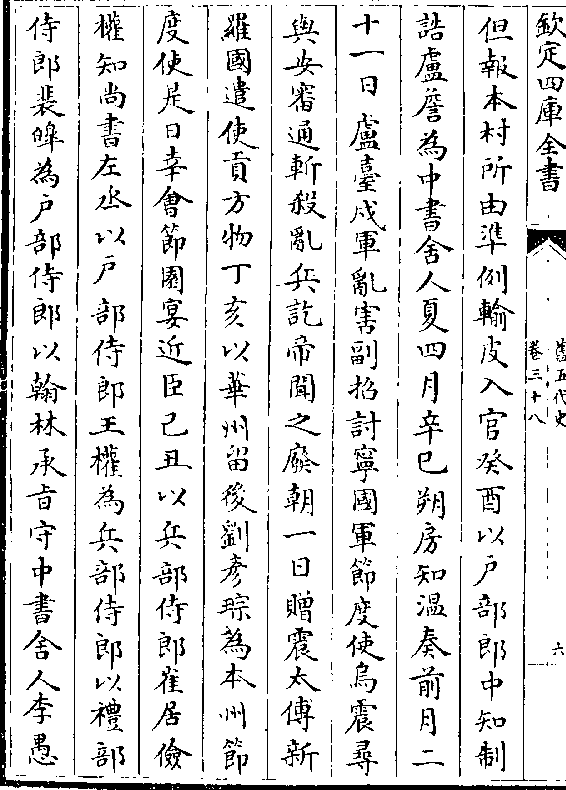 欽定四庫全書
舊五代史
卷三十八
六
但報本村所由準例輸皮入官癸酉以戸部郎中知制
誥盧詹為中書舍人夏四月辛巳朔房知溫奏前月二
十一日盧臺戍軍亂害副招討寧國軍節度使烏震尋
與安審通斬殺亂兵訖帝聞之廢朝一日贈震太傅新
羅國遣使貢方物丁亥以華州留後劉彥琮為本州節
度使是日幸會節園宴近臣己丑以兵部侍郎崔居儉
權知尚書左丞以戸部侍郎王權為兵部侍郎以禮部
侍郎裴皥為戸部侍郎以翰林承旨守中書舍人李愚